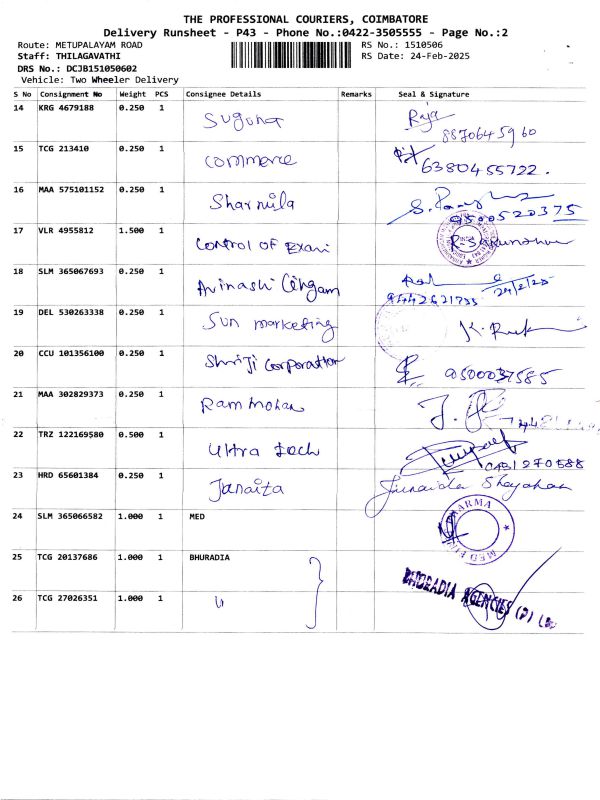 THE PROFESSIONAL COURIERS, COIMBATORE
Delivery Runsheet - P43 - Phone No.:0422-3505555 - Page No.:2
Route: METUPALAYAM ROAD RS No.: 1510506
Staff: THILAGAVATHI RS Date: 24-Feb-2025
DRS No.: DCJB151050602
Vehicle: Two Wheeler Delivery
S No Consignment No Weight PCS Consignee Details Remarks Seal & Signature
14 KRG 4679188 0.250 1 Suguna Raja
8870645960
15 TCG 213410 0.250 1 Commerce 6380455722.
16 MAA 575101152 0.250 1 Sharmila
9500520375
17 VLR 4955812 1.500 1 Control of Exam
18 SLM 365067693 0.250 1 Avinashi Lingam 24/2/25
19 DEL 530263338 0.250 1 Sun marketing
20 CCU 101356100 0.250 1 Shriji Corporation 9500037585
21 MAA 302829373 0.250 1 Ram Mohan
22 TRZ 122169580 0.500 1 Ultra Tech
23 HRD 65601384 0.250 1 Janaita
24 SLM 365066582 1.000 1 MED
25 TCG 20137686 1.000 1 BHURADIA
26 TCG 27026351 1.000 1 "
BHURADIA AGENCIES (P)